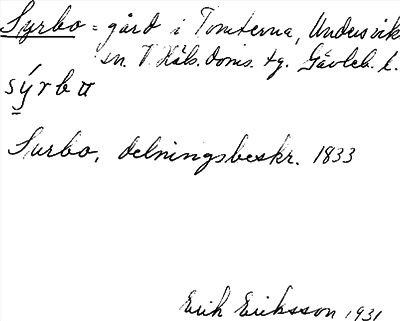 Syrbo = gård i Tomterna, Undersvik
sn. V. Häls. doms. tg. Gävleb. l.
sýrbα
Surbo, delningsbeskr. 1833
Erik Eriksson 1931